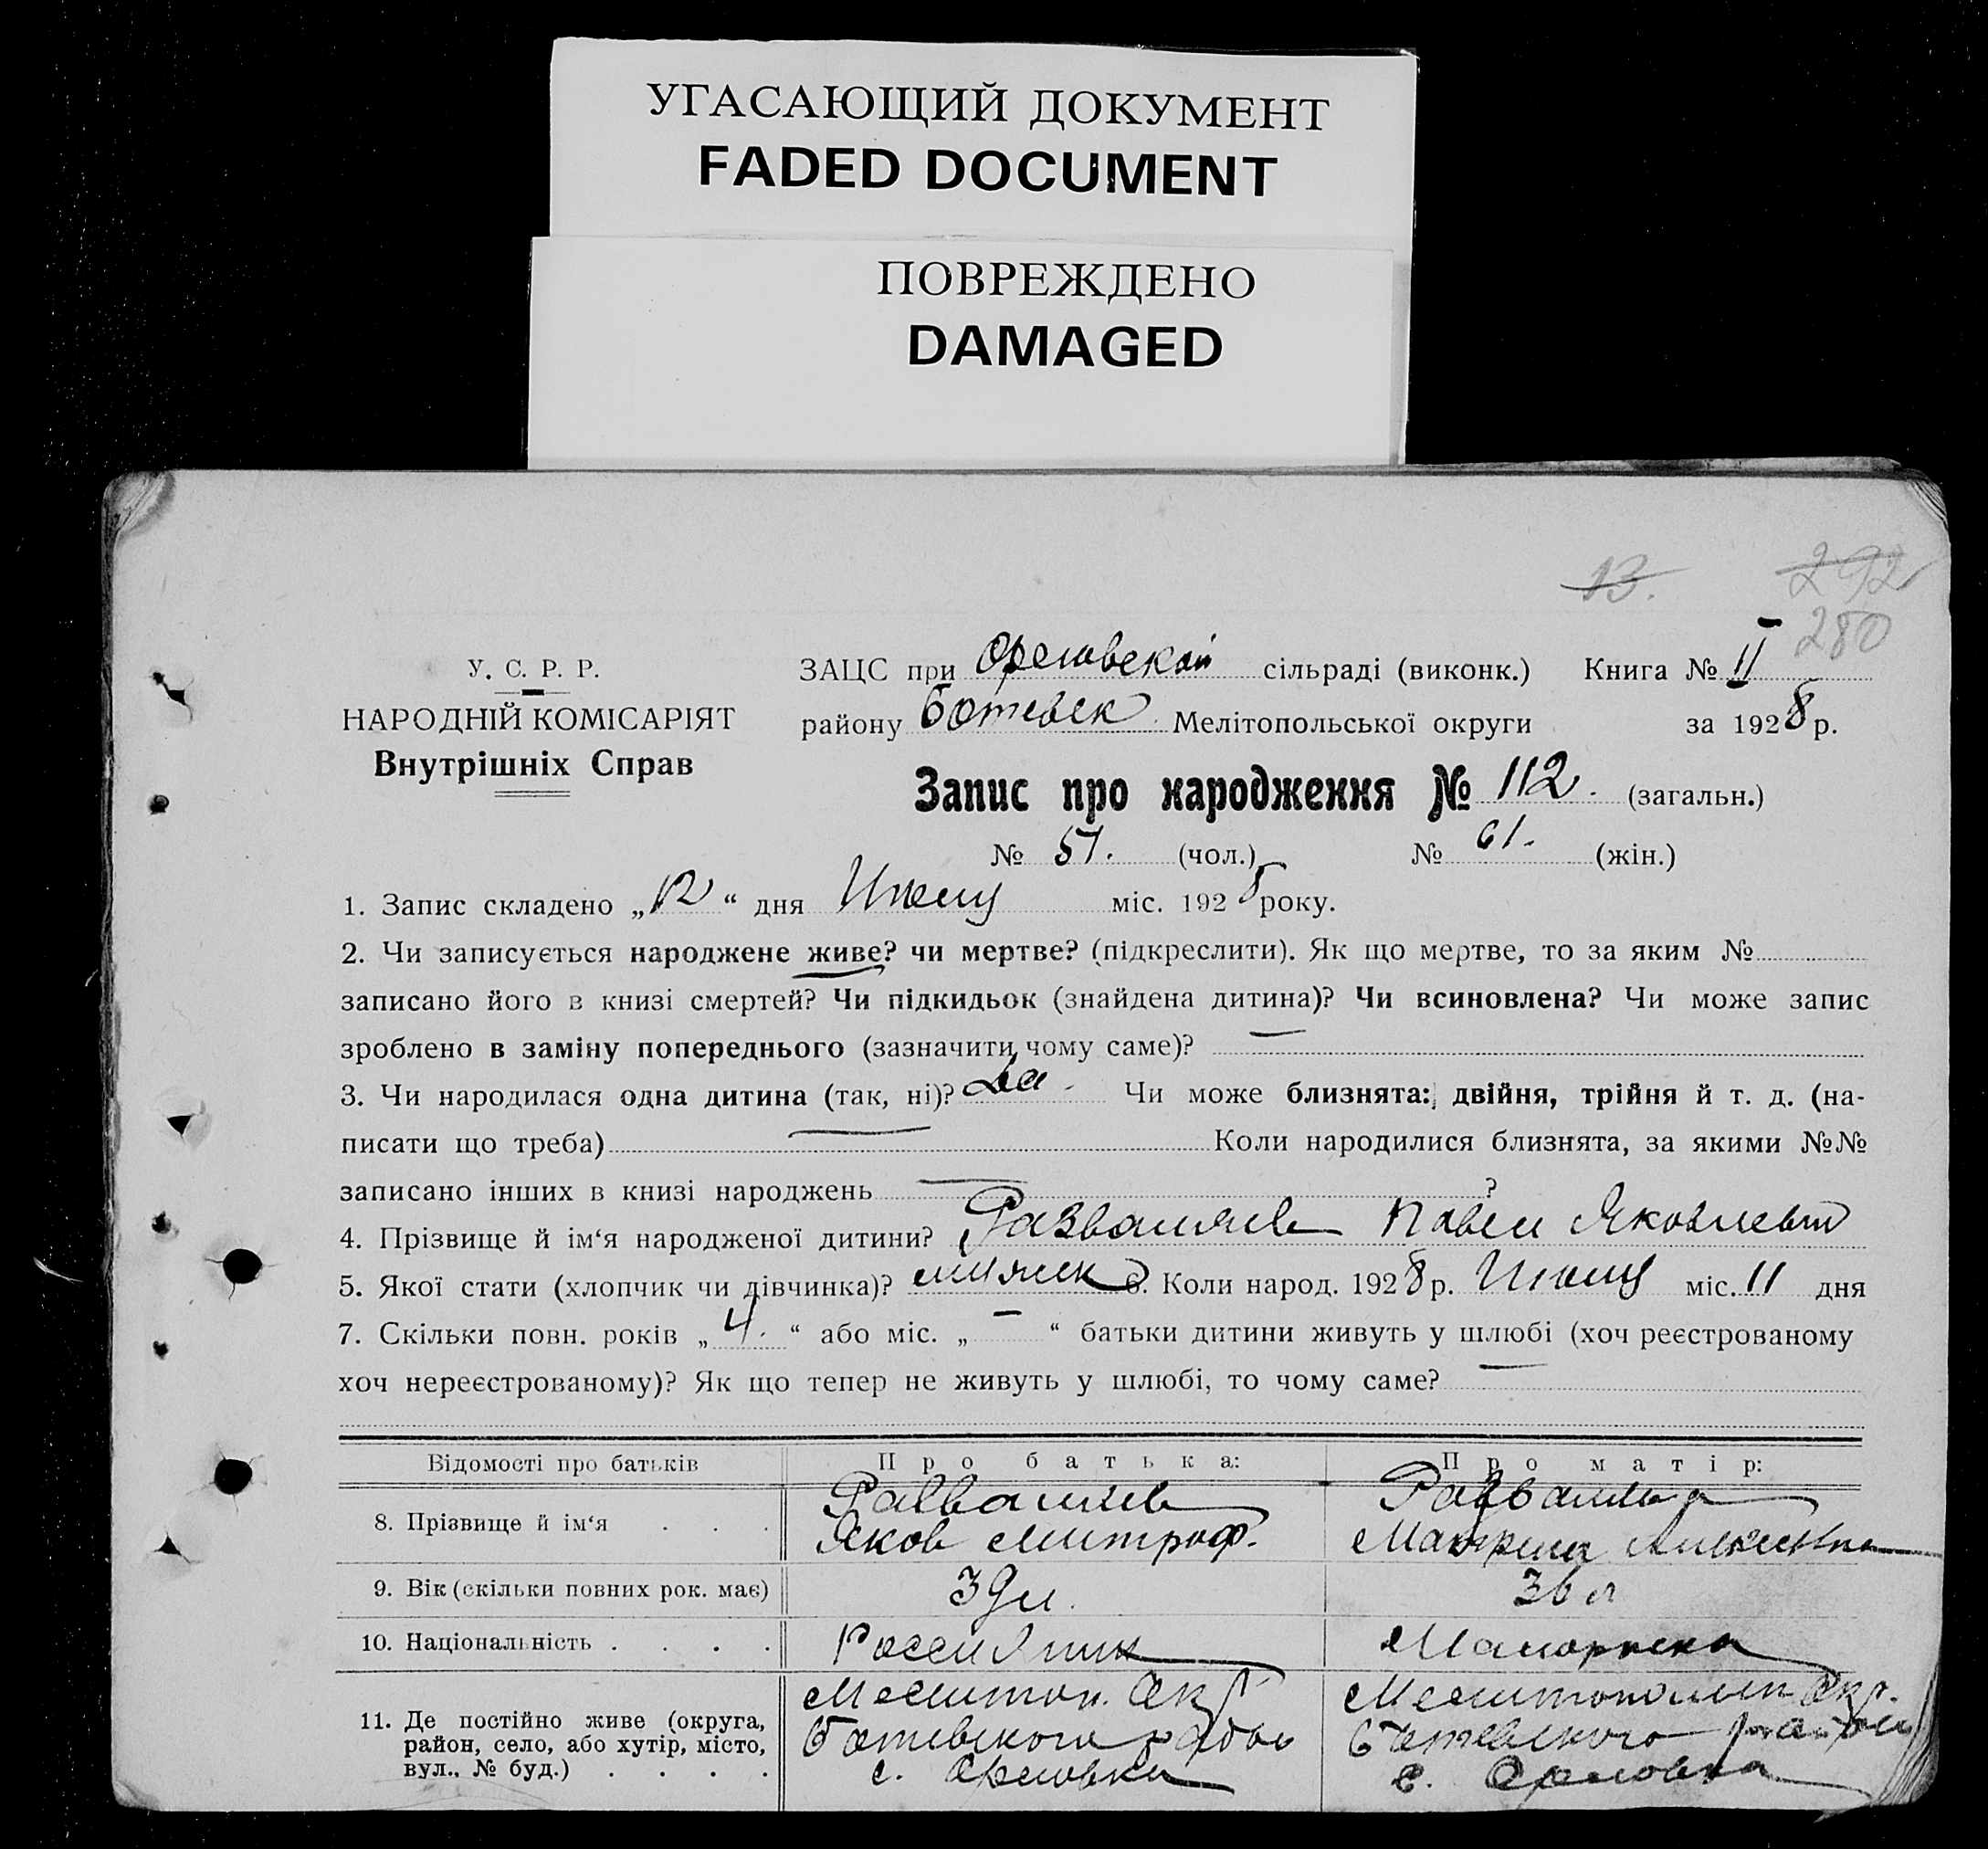 УГАСАЮЩИЙ ДОКУМЕНТ
FADED DOCUMENT
ПОВРЕЖДЕНО
DAMAGED
13.
292
280
У. С. Р. Р.
НАРОДНІЙ КОМІСАРІЯТ
Внутрішніх Справ
ЗАЦС при Орловской сільраді (виконк.) Книга № II
району Ботевск. Мелітопольської округи за 1928 р.
Запис про народження № 112. (загальн.)
№ 51. (чол.) № 61. (жін.)
1. Запис складено „12“ дня Июня міс. 1928 року.
2. Чи записується народжене живе? чи мертве? (підкреслити). Як що мертве, то за яким №
записано його в книзі смертей? Чи підкидьок (знайдена дитина)? Чи всиновлена? Чи може запис
зроблено в заміну попереднього (зазначити чому саме)? —
3. Чи народилася одна дитина (так, ні)? Да. Чи може близнята: двійня, трійня й т. д. (на-
писати що треба) — Коли народилися близнята, за якими №№
записано інших в книзі народжень — ?
4. Прізвище й ім‘я народженої дитини? Разваляев Павел Яковлевич
5. Якої стати (хлопчик чи дівчинка)? 6. Коли народ. 1928 р. Июня міс. 11 дня
7. Скільки повн. років „4.“ або міс. „—“ батьки дитини живуть у шлюбі (хоч реєстрованому
хоч нереєстрованому)? Як що тепер не живуть у шлюбі, то чому саме? —
Відомості про батьків Про батька: Про матір:
8. Прізвище й ім‘я . . . Разваляев Разваляева
Яков Митроф. Матрена Алексеевна
9. Вік (скільки повних рок. має) 39 л. 36 л
10. Національність . . . . Россиянин Малоруска
11. Де постійно живе (округа, район, село, або хутір, місто, вул., № буд.) . . . . Мелитоп. Окр. Мелитопольск Окр.
Ботевского району Ботевского району
с. Орловка с. Орловка